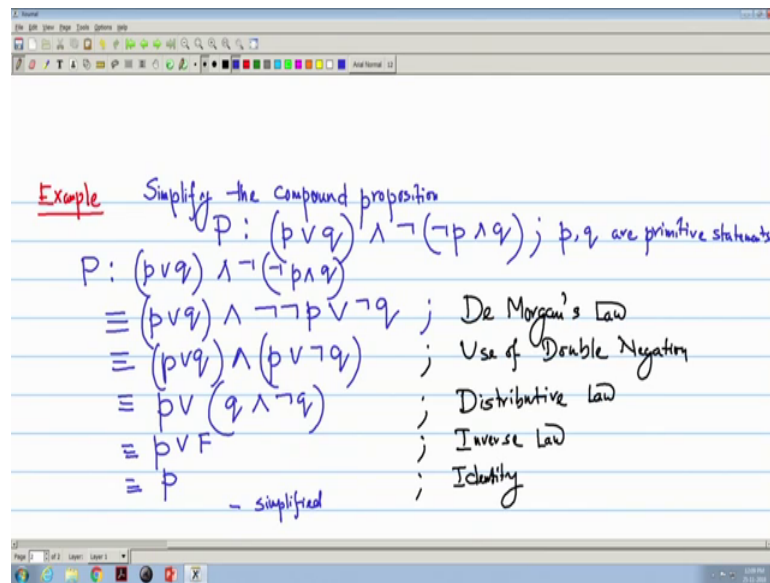 Journal
File Edit View Page Tools Options Help
Arial Normal 12
Example Simplify the compound proposition
P : (p ∨ q) ∧ ¬(¬p ∧ q) ; p, q are primitive statements
P : (p ∨ q) ∧ ¬(¬p ∧ q)
≡ (p ∨ q) ∧ ¬¬p ∨ ¬q ; De Morgan's Law
≡ (p ∨ q) ∧ (p ∨ ¬q) ; Use of Double Negation
≡ p ∨ (q ∧ ¬q) ; Distributive Law
≡ p ∨ F ; Inverse Law
≡ p ; Identity
- simplified
Page 2 of 2 Layer: Layer 1